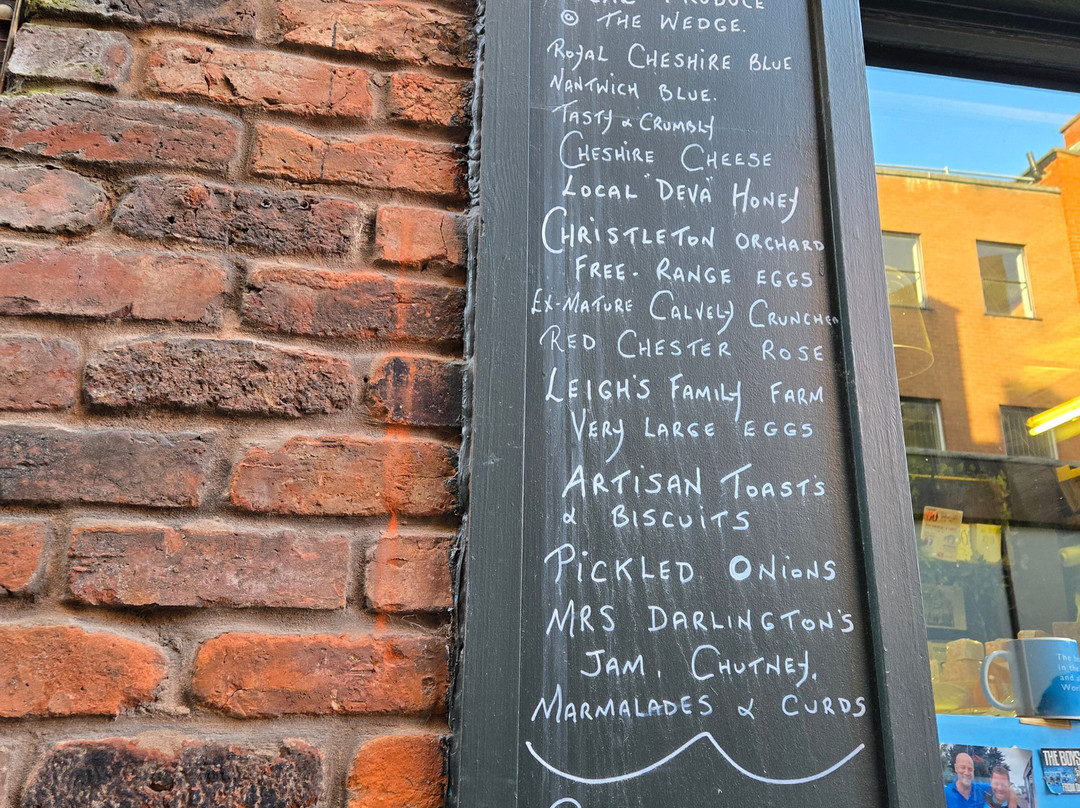 PRODUCE
@ THE WEDGE.
ROYAL CHESHIRE BLUE
NANTWICH BLUE.
TASTY & CRUMBLY
CHESHIRE CHEESE
LOCAL "DEVA" HONEY
CHRISTLETON ORCHARD
FREE-RANGE EGGS
EX-MATURE CALVELY CRUNCHER
RED CHESTER ROSE
LEIGH'S FAMILY FARM
VERY LARGE EGGS
ARTISAN TOASTS
& BISCUITS
PICKLED ONIONS
MRS DARLINGTON'S
JAM, CHUTNEY,
MARMALADES & CURDS
The
in the
and
THE BOYS